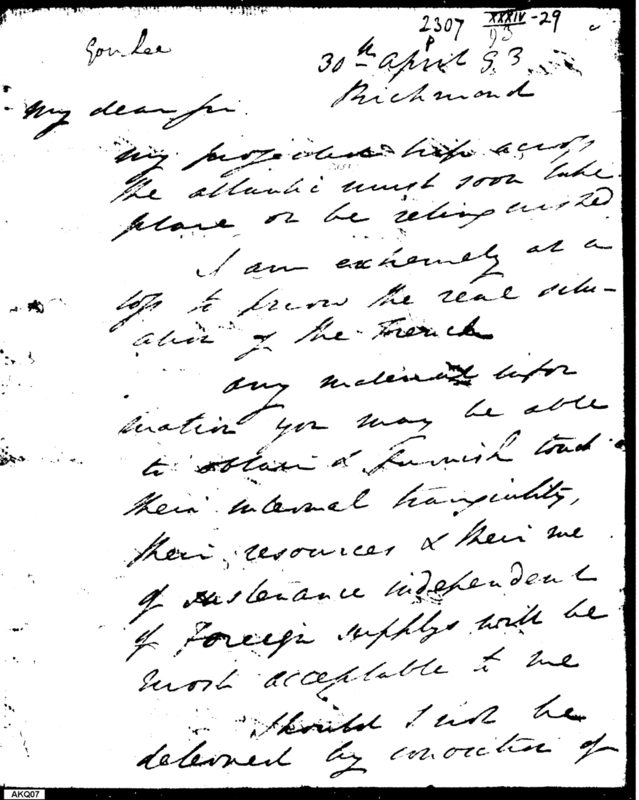 2307 XXXIV-29
93
Gov. Lee
30th April 93
Richmond
My dear sir.
my projected trip across
the atlantic must soon take
place or be relinquished
I am extremely at a
loss to know the real situ-
ation of the French
any material infor
mation you may be able
to obtain & furnish touch
their internal tranquility,
their resources & their me
of sustenance independent
of Foreign supplys will be
most acceptable to me
Should I not be
deterred by conviction of
AKQ07